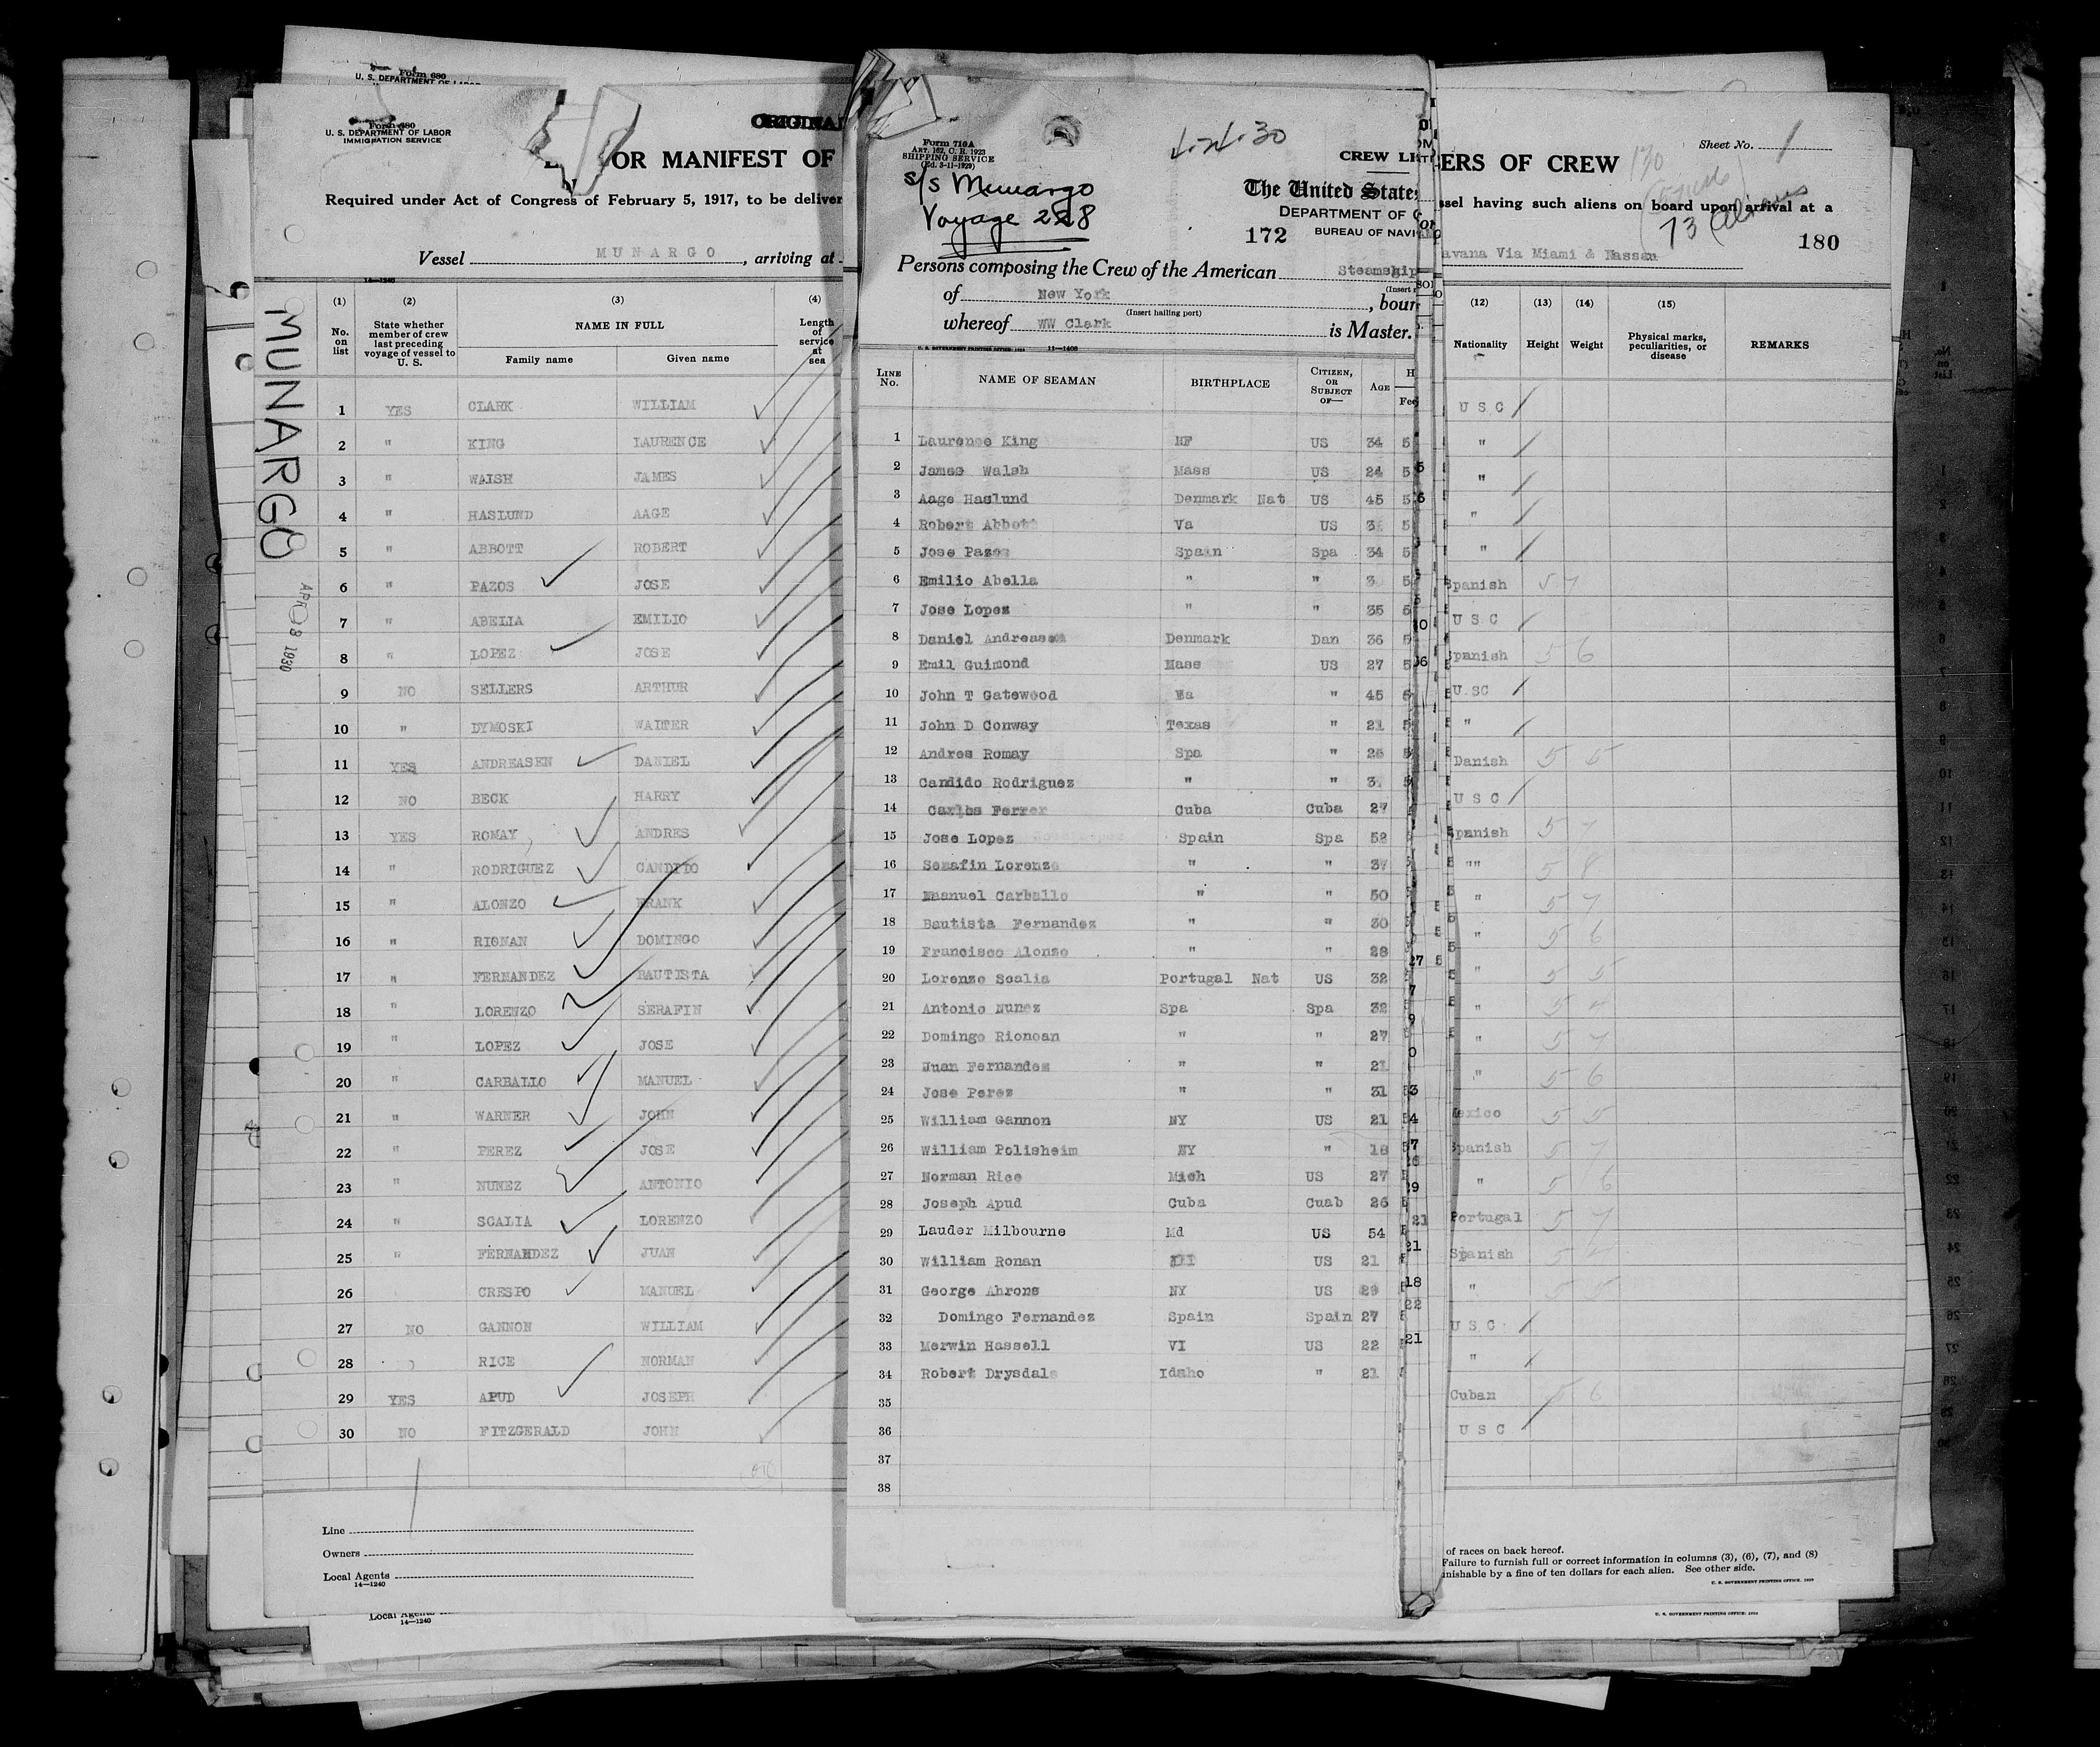 Form 680
U. S. DEPARTMENT OF LABOR
Form 680
U. S. DEPARTMENT OF LABOR
IMMIGRATION SERVICE
OR MANIFEST OF
Required under Act of Congress of February 5, 1917, to be deliver
Vessel MUNARGO, arriving at
14—1240
MUNARGO
APR 8 1930
(1) (2) (3) (4)
No. on list
State whether member of crew last preceding voyage of vessel to U. S.
NAME IN FULL
Family name Given name
Length of service at sea
1 YES CLARK WILLIAM
2 " KING LAURENCE
3 " WALSH JAMES
4 " HASLUND AAGE
5 " ABBOTT ROBERT
6 " PAZOS JOSE
7 " ABELLA EMILIO
8 " LOPEZ JOSE
9 NO SELLERS ARTHUR
10 " DYMOSKI WALTER
11 YES ANDREASEN DANIEL
12 NO BECK HARRY
13 YES ROMAY ANDRES
14 " RODRIGUEZ CANDIDO
15 " ALONZO FRANK
16 " RIONAN DOMINGO
17 " FERNANDEZ BAUTISTA
18 " LORENZO SERAFIN
19 " LOPEZ JOSE
20 " CARBALLO MANUEL
21 " WARNER JOHN
22 " PEREZ JOSE
23 " NUNEZ ANTONIO
24 " SCALIA LORENZO
25 " FERNANDEZ JUAN
26 CRESPO MANUEL
27 NO GANNON WILLIAM
28 RICE NORMAN
29 YES APUD JOSEPH
30 NO FITZGERALD JOHN
Line
Owners
Local Agents
14—1240
Local Agents
14—1240
Form 710A
ART. 162, C. R. 1923
SHIPPING SERVICE
(Ed. 3-11-1929)
S/S Munargo
Voyage 228
CREW LI
The United State
DEPARTMENT OF C
172 BUREAU OF NAVI
Persons composing the Crew of the American Steamship
of New York, boun
(Insert hailing port)
whereof WW Clark is Master.
U. S. GOVERNMENT PRINTING OFFICE: 1929 11—1406
LINE No. NAME OF SEAMAN BIRTHPLACE CITIZEN, OR SUBJECT OF— AGE H
Fee
1 Laurence King NF US 34 5
2 James Walsh Mass US 24 5
3 Aage Haslund Denmark Nat US 45 5
4 Robert Abbott Va US 5
5 Jose Pazos Spain Spa 34 5
6 Emilio Abella " " 5
7 Jose Lopez " " 35 5
8 Daniel Andreasen Denmark Dan 36 5
9 Emil Guimond Mass US 27 5
10 John T Gatewood " 45 5
11 John D Conway Texas " 21 5
12 Andres Romay Spa " 25 5
13 Candido Rodriguez " " 5
14 Carlos Ferrer Cuba Cuba 27
15 Jose Lopez Spain Spa 52
16 Serafin Lorenzo " " 37
17 Manuel Carballo " " 50
18 Bautista Fernandez " " 30
19 Francisco Alonzo " " 28
20 Lorenzo Scalia Portugal Nat US 32
21 Antonio Nunez Spa Spa 32
22 Domingo Rionoan " " 27
23 Juan Fernandez " " 21
24 Jose Perez " " 31
25 William Gannon NY US 21
26 William Polisheim NY " 18
27 Norman Rice Mich US 27
28 Joseph Apud Cuba Cuab 26
29 Lauder Milbourne Md US 54
30 William Ronan US 21
31 George Ahrons NY US 29
32 Domingo Fernandez Spain Spain 27
33 Merwin Hassell VI US 22
34 Robert Drysdale Idaho " 21
35
36
37
38
Sheet No. 1
ERS OF CREW
ssel having such aliens on board upon arrival at a
73 Aliens
180
avana Via Miami & Nassau
(12) (13) (14) (15)
Nationality Height Weight Physical marks, peculiarities, or disease REMARKS
U S C
"
"
"
"
Spanish 5 7
U S C
Spanish 5 6
U SC
"
Danish 5 5
U S C
Spanish 5 7
"" 5 8
" 5 7
" 5 6
" 5 5
" 5 4
" 5 7
" 5 6
Mexico 5 5
Spanish 5 7
" 5 6
Portugal 5 7
Spanish 5
" 5 5
U S C
"
Cuban 5 6
U S C
of races on back hereof.
Failure to furnish full or correct information in columns (3), (6), (7), and (8)
nishable by a fine of ten dollars for each alien. See other side.
U. S. GOVERNMENT PRINTING OFFICE: 1929